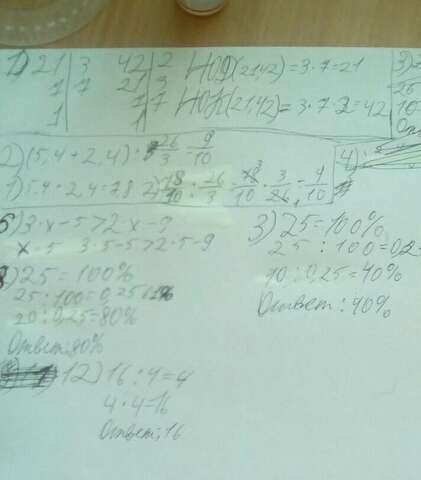 1) 21 | 3 42 | 2 НОД(21,42)=3·7=21
7 | 7 21 | 3
1 | 1 | 7 НОК(21,42)=3·7·2=42
2) (5,4+2,4) : 26/3 = 9/10
1) 5,4+2,4=7,8 2) 78/10 : 26/3 = 78/10 · 3/26 = 9/10
4)
3·x-5>2·x-9
x=5 3·5-5>2·5-9
3) 25=100%
25:100=0,25
10:0,25=40%
Ответ:40%
8) 25=100%
25:100=0,25
20:0,25=80%
Ответ:80%
12) 16:4=4
4·4=16
Ответ:16